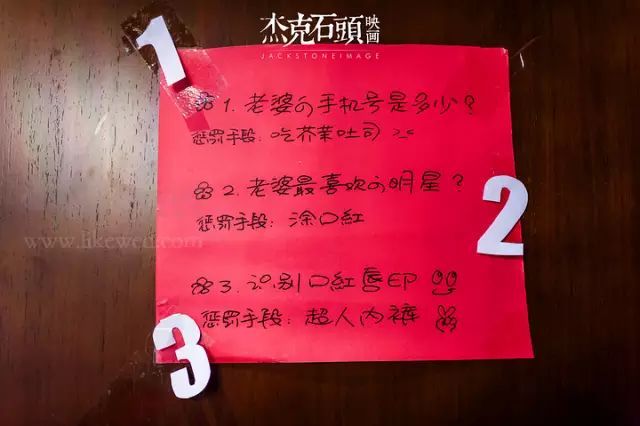 杰克石頭映画
JACKSTONEIMAGE
1
1. 老婆の手机号是多少？
惩罚手段：吃芥茉吐司
2. 老婆最喜欢の明星？
惩罚手段：涂口红
2
www.likewed.com
3. 识别口红唇印
惩罚手段：超人内裤
3